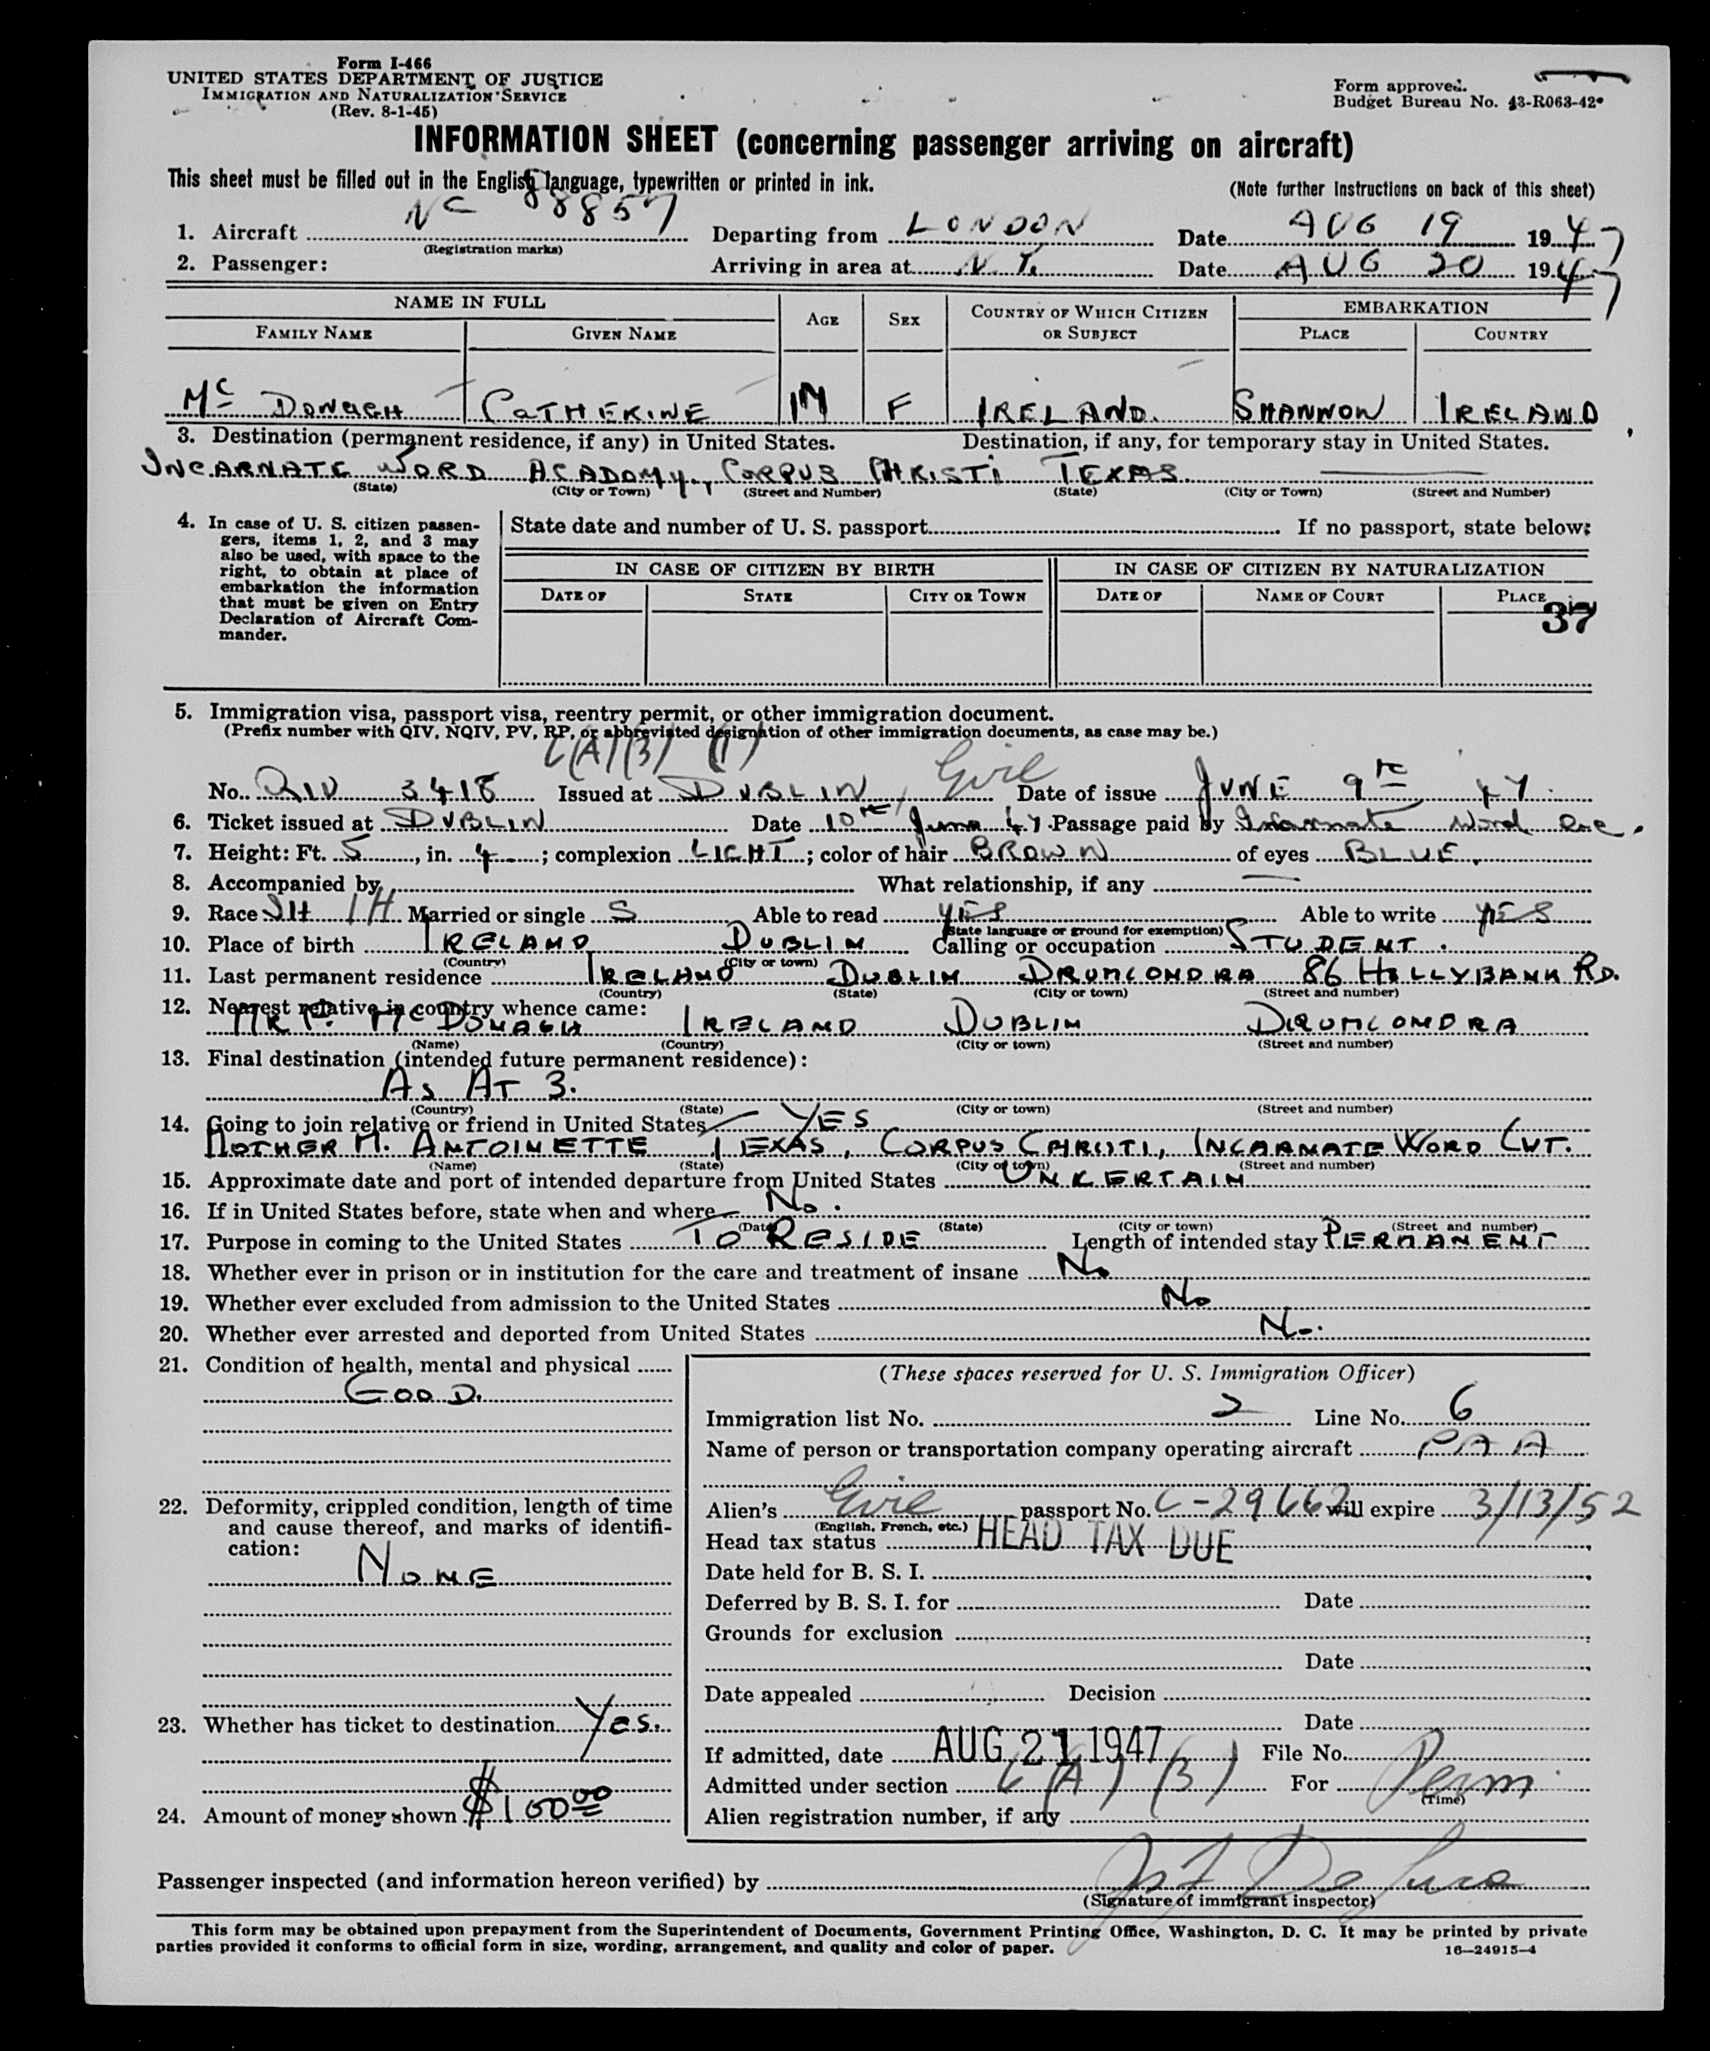 Form I-466
UNITED STATES DEPARTMENT OF JUSTICE
IMMIGRATION AND NATURALIZATION SERVICE
(Rev. 8-1-45)
Form approved.
Budget Bureau No. 43-R063-42
INFORMATION SHEET (concerning passenger arriving on aircraft)
This sheet must be filled out in the English language, typewritten or printed in ink.
(Note further instructions on back of this sheet)
1. Aircraft NC 88857 Departing from LONDON Date AUG 19 1947
(Registration marks)
2. Passenger: Arriving in area at N.Y. Date AUG 20 1947
NAME IN FULL AGE SEX COUNTRY OF WHICH CITIZEN OR SUBJECT EMBARKATION
FAMILY NAME GIVEN NAME PLACE COUNTRY
Mc DONAGH CATHERINE 17 F IRELAND. SHANNON IRELAND
3. Destination (permanent residence, if any) in United States. Destination, if any, for temporary stay in United States.
INCARNATE WORD ACADOMY, CORPUS CHRISTI TEXAS
(State) (City or Town) (Street and Number) (State) (City or Town) (Street and Number)
4. In case of U. S. citizen passengers, items 1, 2, and 3 may also be used, with space to the right, to obtain at place of embarkation the information that must be given on Entry Declaration of Aircraft Commander.
State date and number of U. S. passport If no passport, state below:
IN CASE OF CITIZEN BY BIRTH IN CASE OF CITIZEN BY NATURALIZATION
DATE OF STATE CITY OR TOWN DATE OF NAME OF COURT PLACE
37
5. Immigration visa, passport visa, reentry permit, or other immigration document.
(Prefix number with QIV, NQIV, PV, RP, or abbreviated designation of other immigration documents, as case may be.)
6(A)(3) (1)
No. QIV 3418 Issued at DUBLIN, Eire Date of issue JUNE 9th 47
6. Ticket issued at DUBLIN Date 10th June 47 Passage paid by Incarnate Word
7. Height: Ft. 5, in. 4; complexion LIGHT; color of hair BROWN of eyes BLUE.
8. Accompanied by What relationship, if any —
9. Race IH Married or single S Able to read YES Able to write YES
(State language or ground for exemption)
10. Place of birth IRELAND DUBLIN Calling or occupation STUDENT.
(Country) (City or town)
11. Last permanent residence IRELAND DUBLIN DRUMCONDRA 86 HOLLYBANK RD.
(Country) (State) (City or town) (Street and number)
12. Nearest relative in country whence came:
MR P. McDONAGH IRELAND DUBLIN DRUMCONDRA
(Name) (Country) (City or town) (Street and number)
13. Final destination (intended future permanent residence):
AS AT 3.
(Country) (State) (City or town) (Street and number)
14. Going to join relative or friend in United States — YES
MOTHER M. ANTOINETTE TEXAS, CORPUS CHRISTI, INCARNATE WORD CVT.
(Name) (State) (City or town) (Street and number)
15. Approximate date and port of intended departure from United States UNCERTAIN
16. If in United States before, state when and where No.
(Date) (State) (City or town) (Street and number)
17. Purpose in coming to the United States TO RESIDE Length of intended stay PERMANENT
18. Whether ever in prison or in institution for the care and treatment of insane No
19. Whether ever excluded from admission to the United States No
20. Whether ever arrested and deported from United States No.
21. Condition of health, mental and physical
GOOD.
22. Deformity, crippled condition, length of time and cause thereof, and marks of identification:
NONE
23. Whether has ticket to destination Yes.
24. Amount of money shown $100.00
(These spaces reserved for U. S. Immigration Officer)
Immigration list No. 2 Line No. 6
Name of person or transportation company operating aircraft PAA
Alien's Eire passport No. C-29662 will expire 3/13/52
(English, French, etc.)
Head tax status HEAD TAX DUE
Date held for B. S. I.
Deferred by B. S. I. for Date
Grounds for exclusion
Date
Date appealed Decision
Date
If admitted, date AUG 21 1947 File No.
Admitted under section 6(A)(3) For Perm
(Time)
Alien registration number, if any
Passenger inspected (and information hereon verified) by
(Signature of immigrant inspector)
This form may be obtained upon prepayment from the Superintendent of Documents, Government Printing Office, Washington, D. C. It may be printed by private
parties provided it conforms to official form in size, wording, arrangement, and quality and color of paper.
16—24915-4